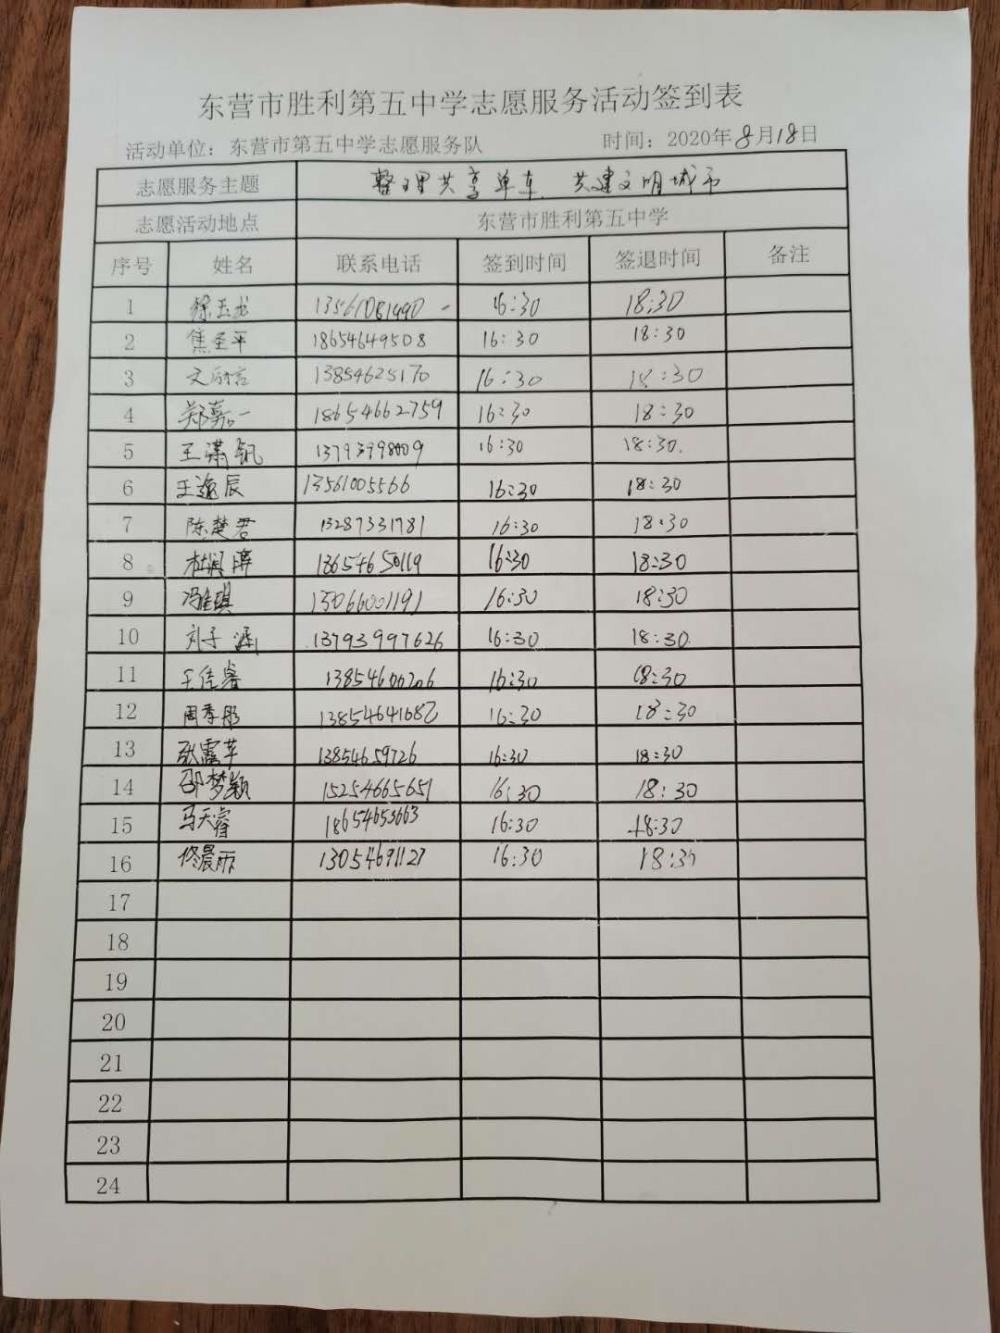 东营市胜利第五中学志愿服务活动签到表
活动单位：东营市第五中学志愿服务队 时间：2020年8月18日
志愿服务主题 整理共享单车 共建文明城市
志愿活动地点 东营市胜利第五中学
序号 姓名 联系电话 签到时间 签退时间 备注
1 徐玉龙 13561081490 16:30 18:30
2 焦圣平 18654649508 16:30 18:30
3 13854625170 16:30 18:30
4 郑嘉一 18654662759 16:30 18:30
5 王潇钒 16:30 18:30
6 王逸辰 13561005566 16:30 18:30
7 陈楚君 13287331781 16:30 18:30
8 13654650119 16:30 18:30
9 冯佳琪 15066001191 16:30 18:30
10 刘子涵 13793997626 16:30 18:30
11 王佳睿 13854600206 16:30 18:30
12 周季彤 13854641682 16:30 18:30
13 张露苹 13854659726 16:30 18:30
14 邵梦颖 15254665651 16:30 18:30
15 马天睿 16:30 18:30
16 佟晨雨 13054691127 16:30 18:30
17
18
19
20
21
22
23
24